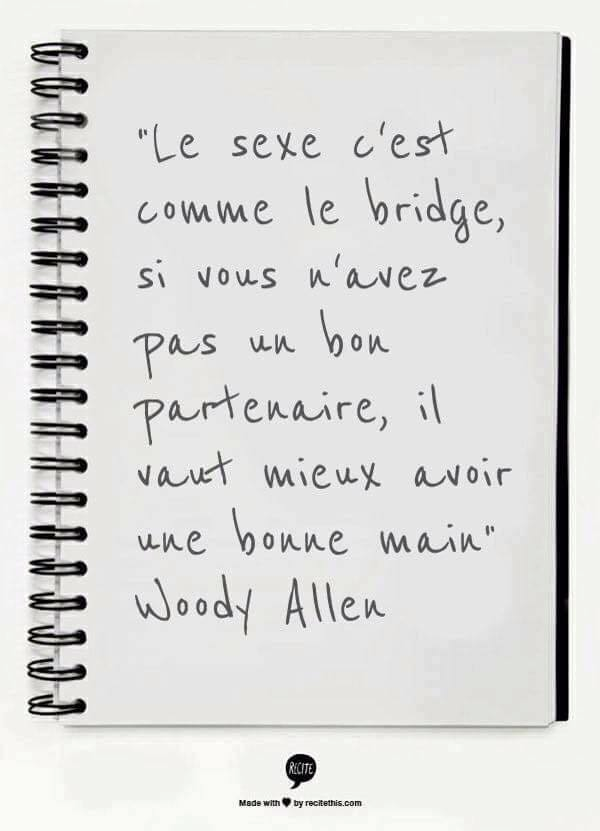 "Le sexe c'est
comme le bridge,
si vous n'avez
pas un bon
partenaire, il
vaut mieux avoir
une bonne main"
Woody Allen
RECITE
Made with ♥ by recitethis.com